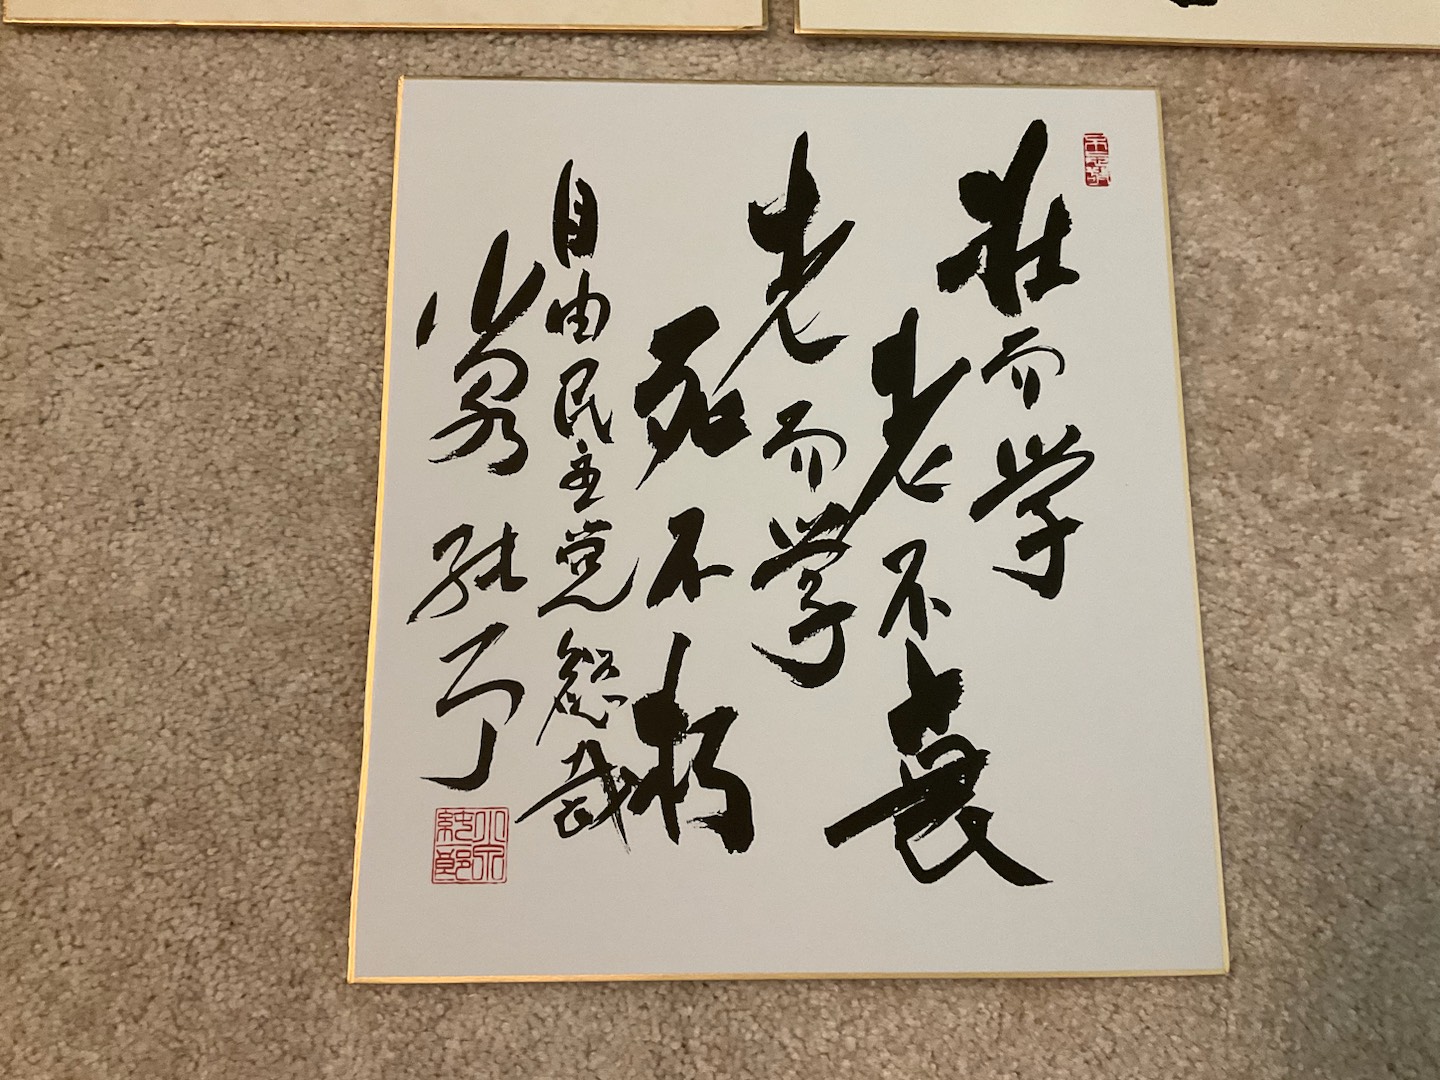 壮而学
老不衰
老而学
死不朽
自由民主党総裁
小泉純一郎
小泉純一郎